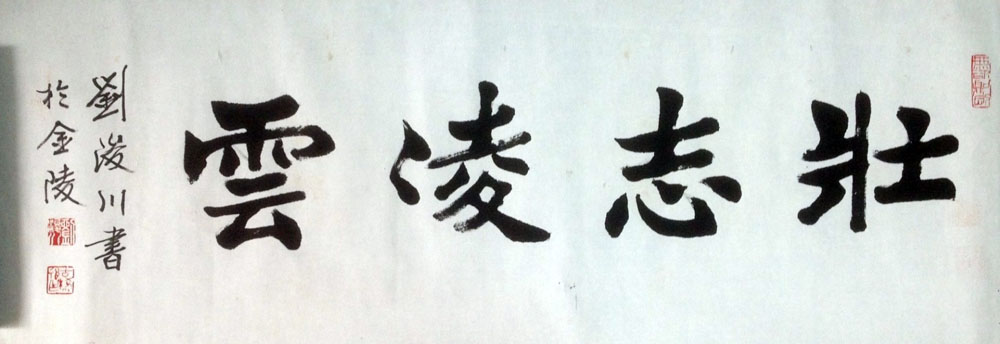 壯志凌雲
劉浚川書
於金陵